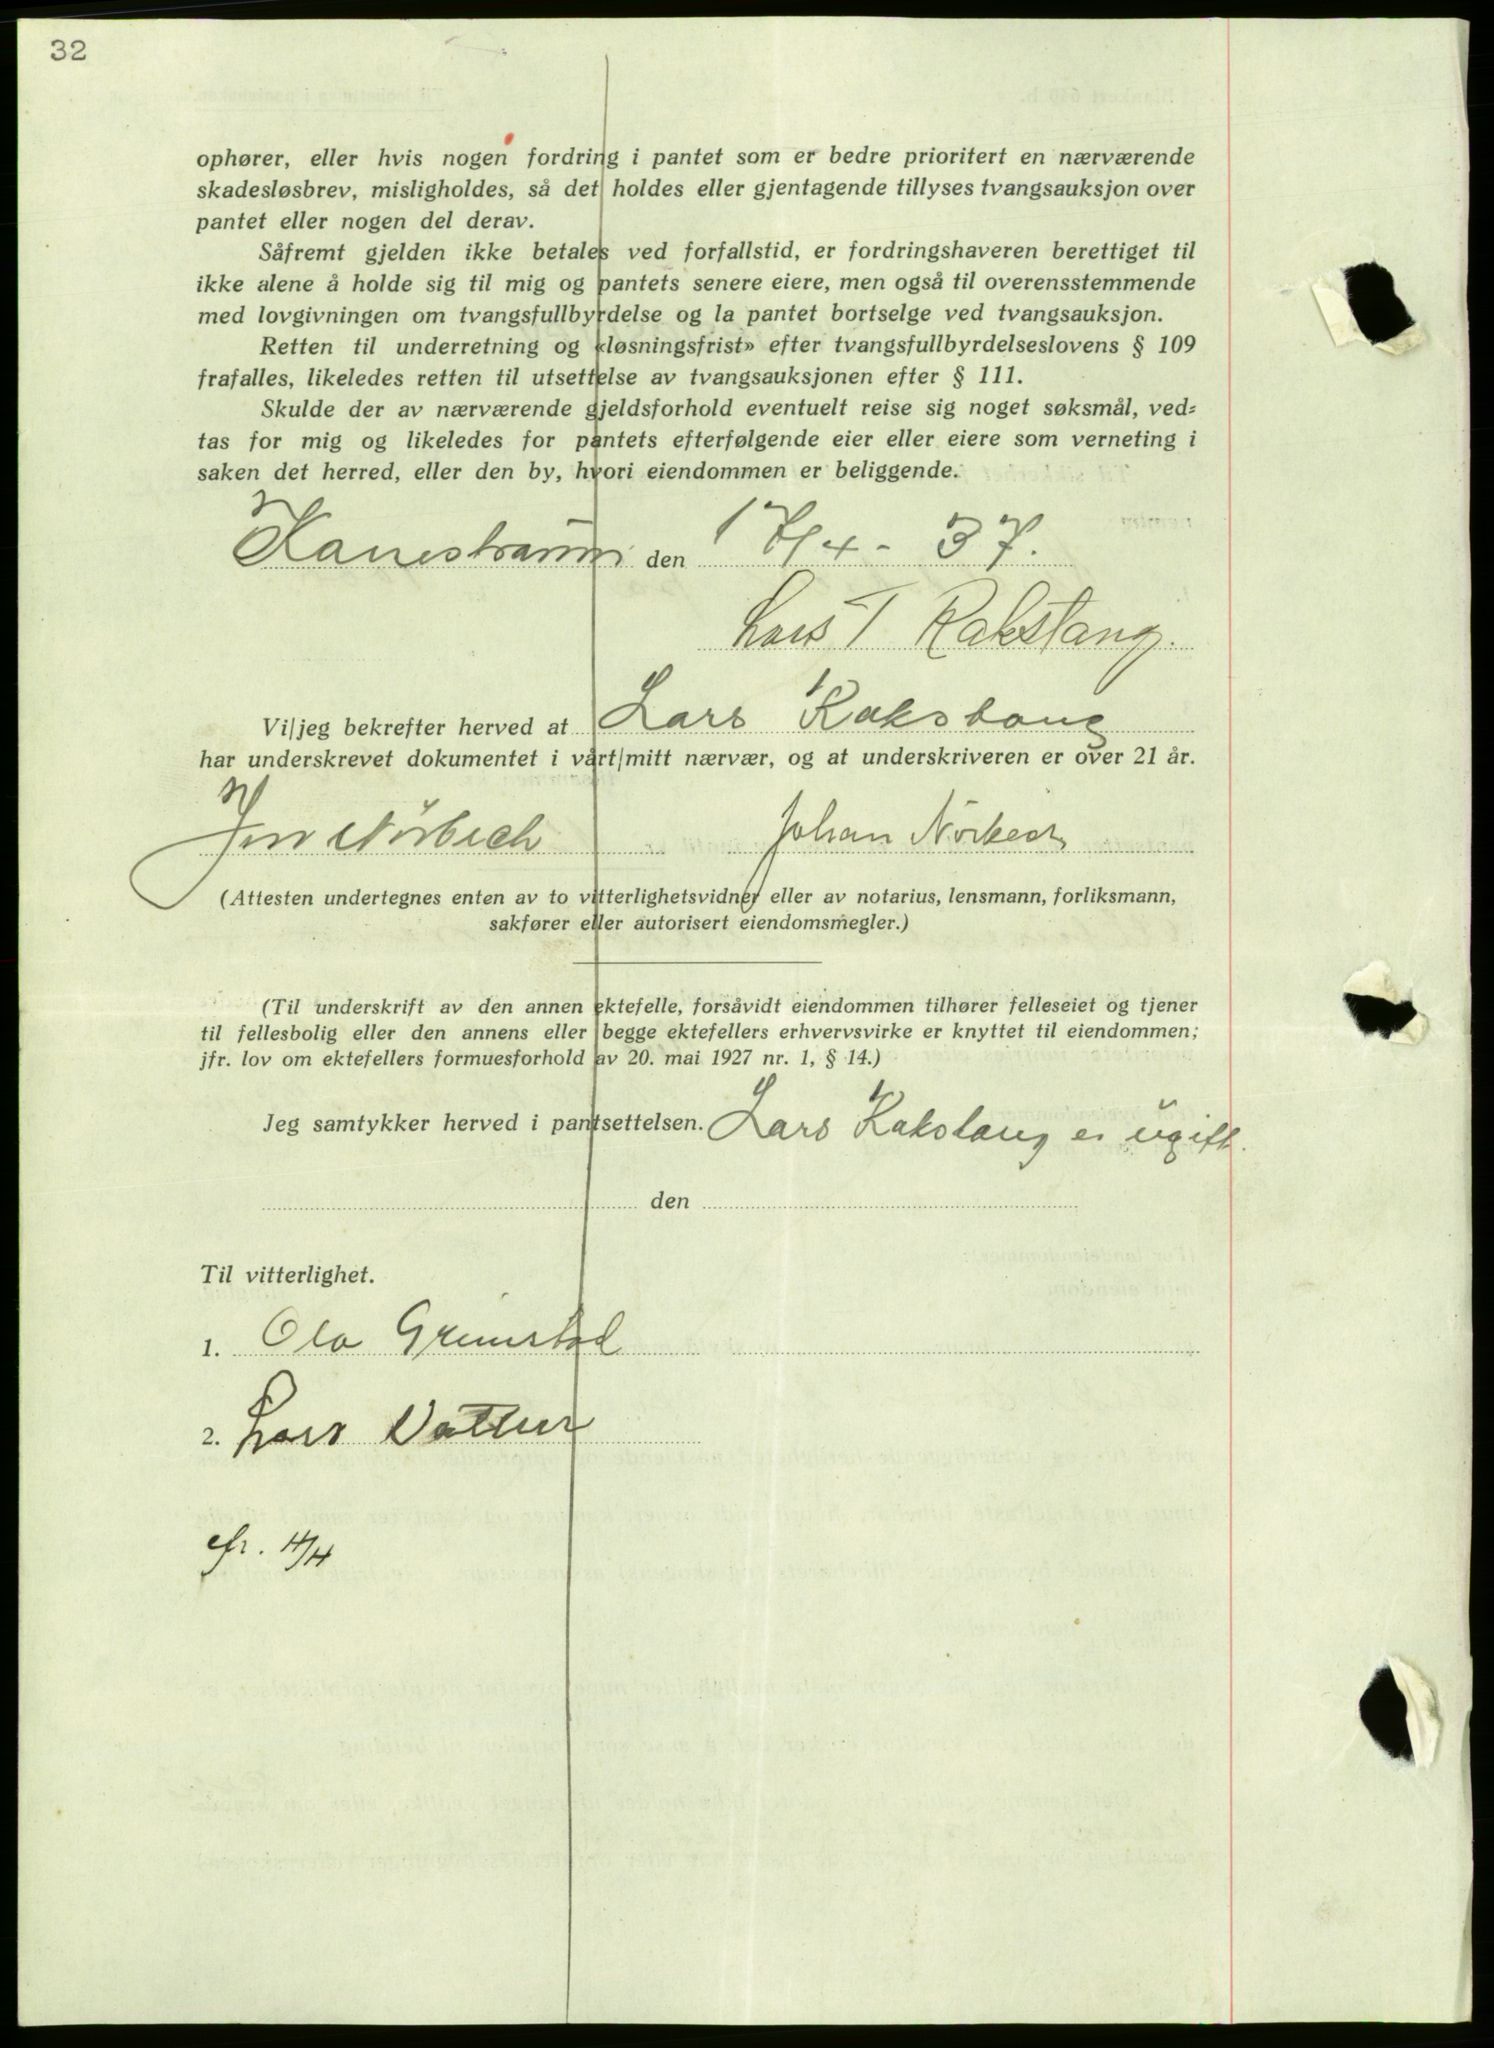 32
ophører, eller hvis nogen fordring i pantet som er bedre prioritert en nærværende
skadesløsbrev, misligholdes, så det holdes eller gjentagende tillyses tvangsauksjon over
pantet eller nogen del derav.
Såfremt gjelden ikke betales ved forfallstid, er fordringshaveren berettiget til
ikke alene å holde sig til mig og pantets senere eiere, men også til overensstemmende
med lovgivningen om tvangsfullbyrdelse og la pantet bortselge ved tvangsauksjon.
Retten til underretning og «løsningsfrist» efter tvangsfullbyrdelseslovens § 109
frafalles, likeledes retten til utsettelse av tvangsauksjonen efter § 111.
Skulde der av nærværende gjeldsforhold eventuelt reise sig noget søksmål, ved-
tas for mig og likeledes for pantets efterfølgende eier eller eiere som verneting i
saken det herred, eller den by, hvori eiendommen er beliggende.
Kanestraum den 17/4 - 37.
Lars T Rakstang.
Vi/jeg bekrefter herved at Lars Rakstang
har underskrevet dokumentet i vårt/mitt nærvær, og at underskriveren er over 21 år.
Jon Nörbech Johan Nörbech
(Attesten undertegnes enten av to vitterlighetsvidner eller av notarius, lensmann, forliksmann,
sakfører eller autorisert eiendomsmegler.)
(Til underskrift av den annen ektefelle, forsåvidt eiendommen tilhører felleseiet og tjener
til fellesbolig eller den annens eller begge ektefellers erhvervsvirke er knyttet til eiendommen;
jfr. lov om ektefellers formuesforhold av 20. mai 1927 nr. 1, § 14.)
Jeg samtykker herved i pantsettelsen. Lars Rakstang er ugift.
den
Til vitterlighet.
1. Ola Grimstad
2. Lars